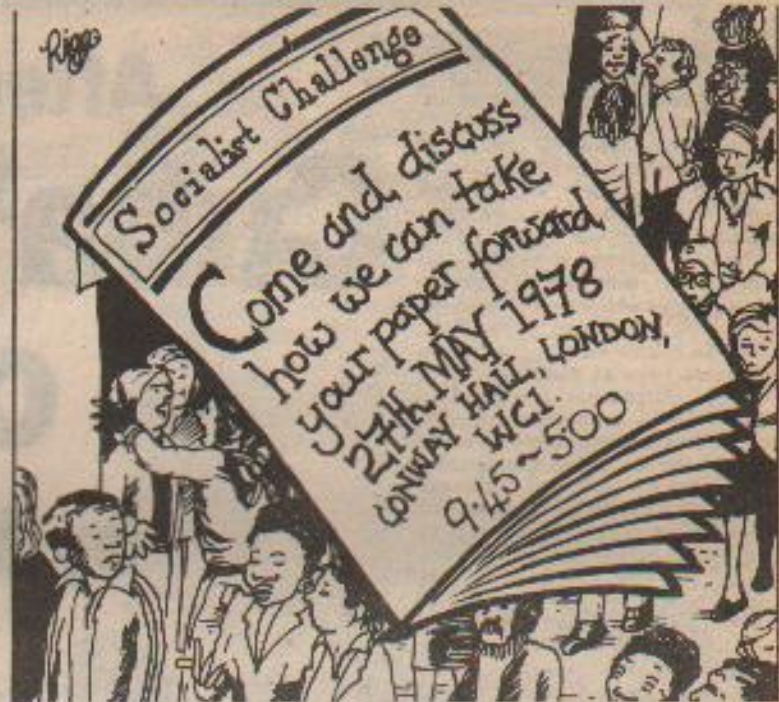 Riggs
Socialist Challenge
Come and discuss
how we can take
your paper forward
27th. MAY 1978
CONWAY HALL, LONDON,
WC1.
9.45~500